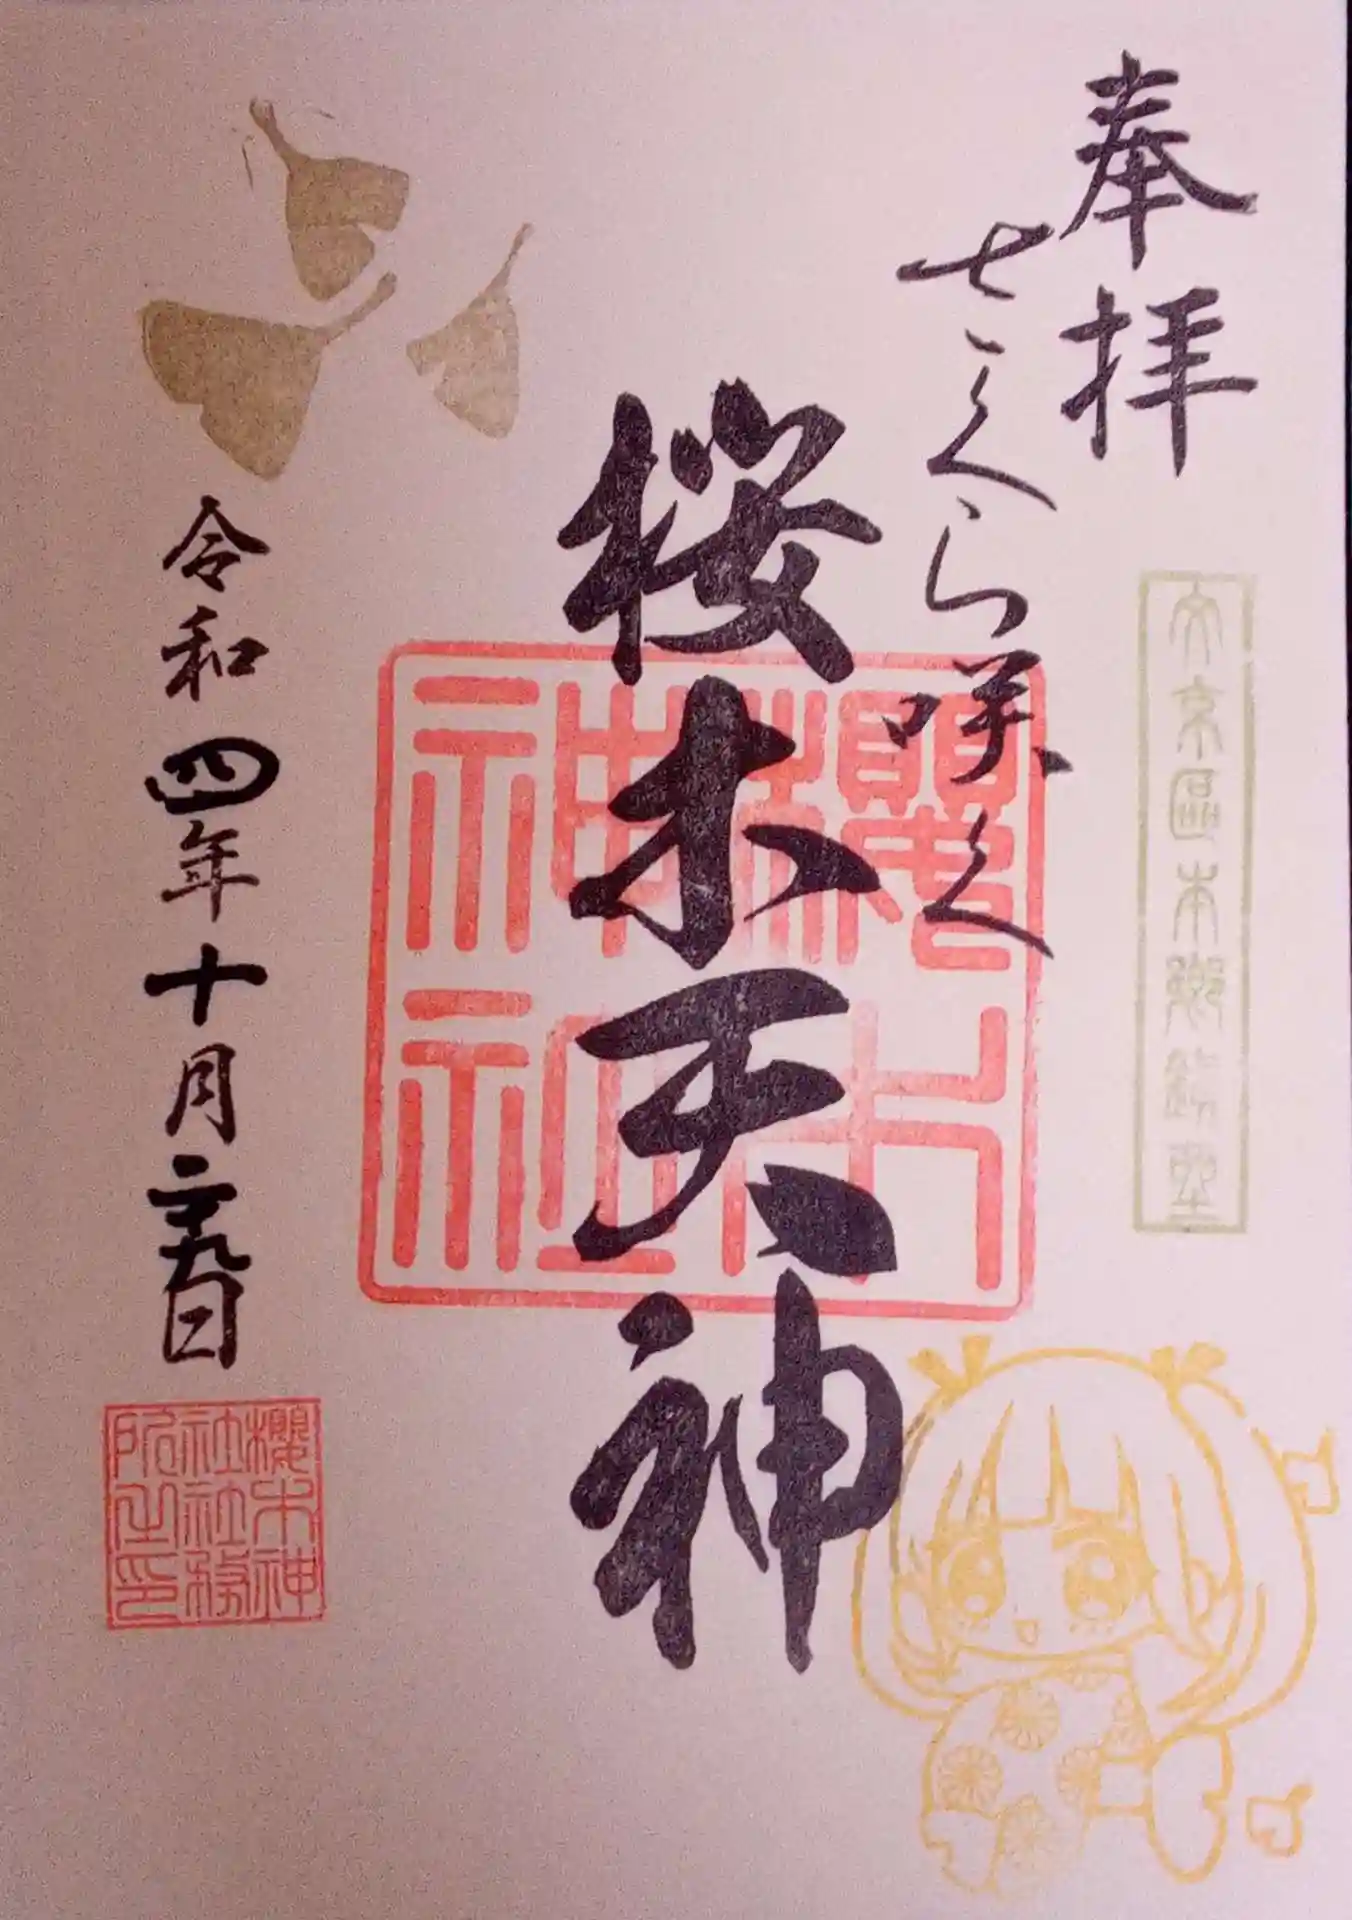 奉拝
さくら咲く
文京區本郷鎮座
桜木天神
櫻木神社
令和四年十月二十九日
櫻木神社社務所之印